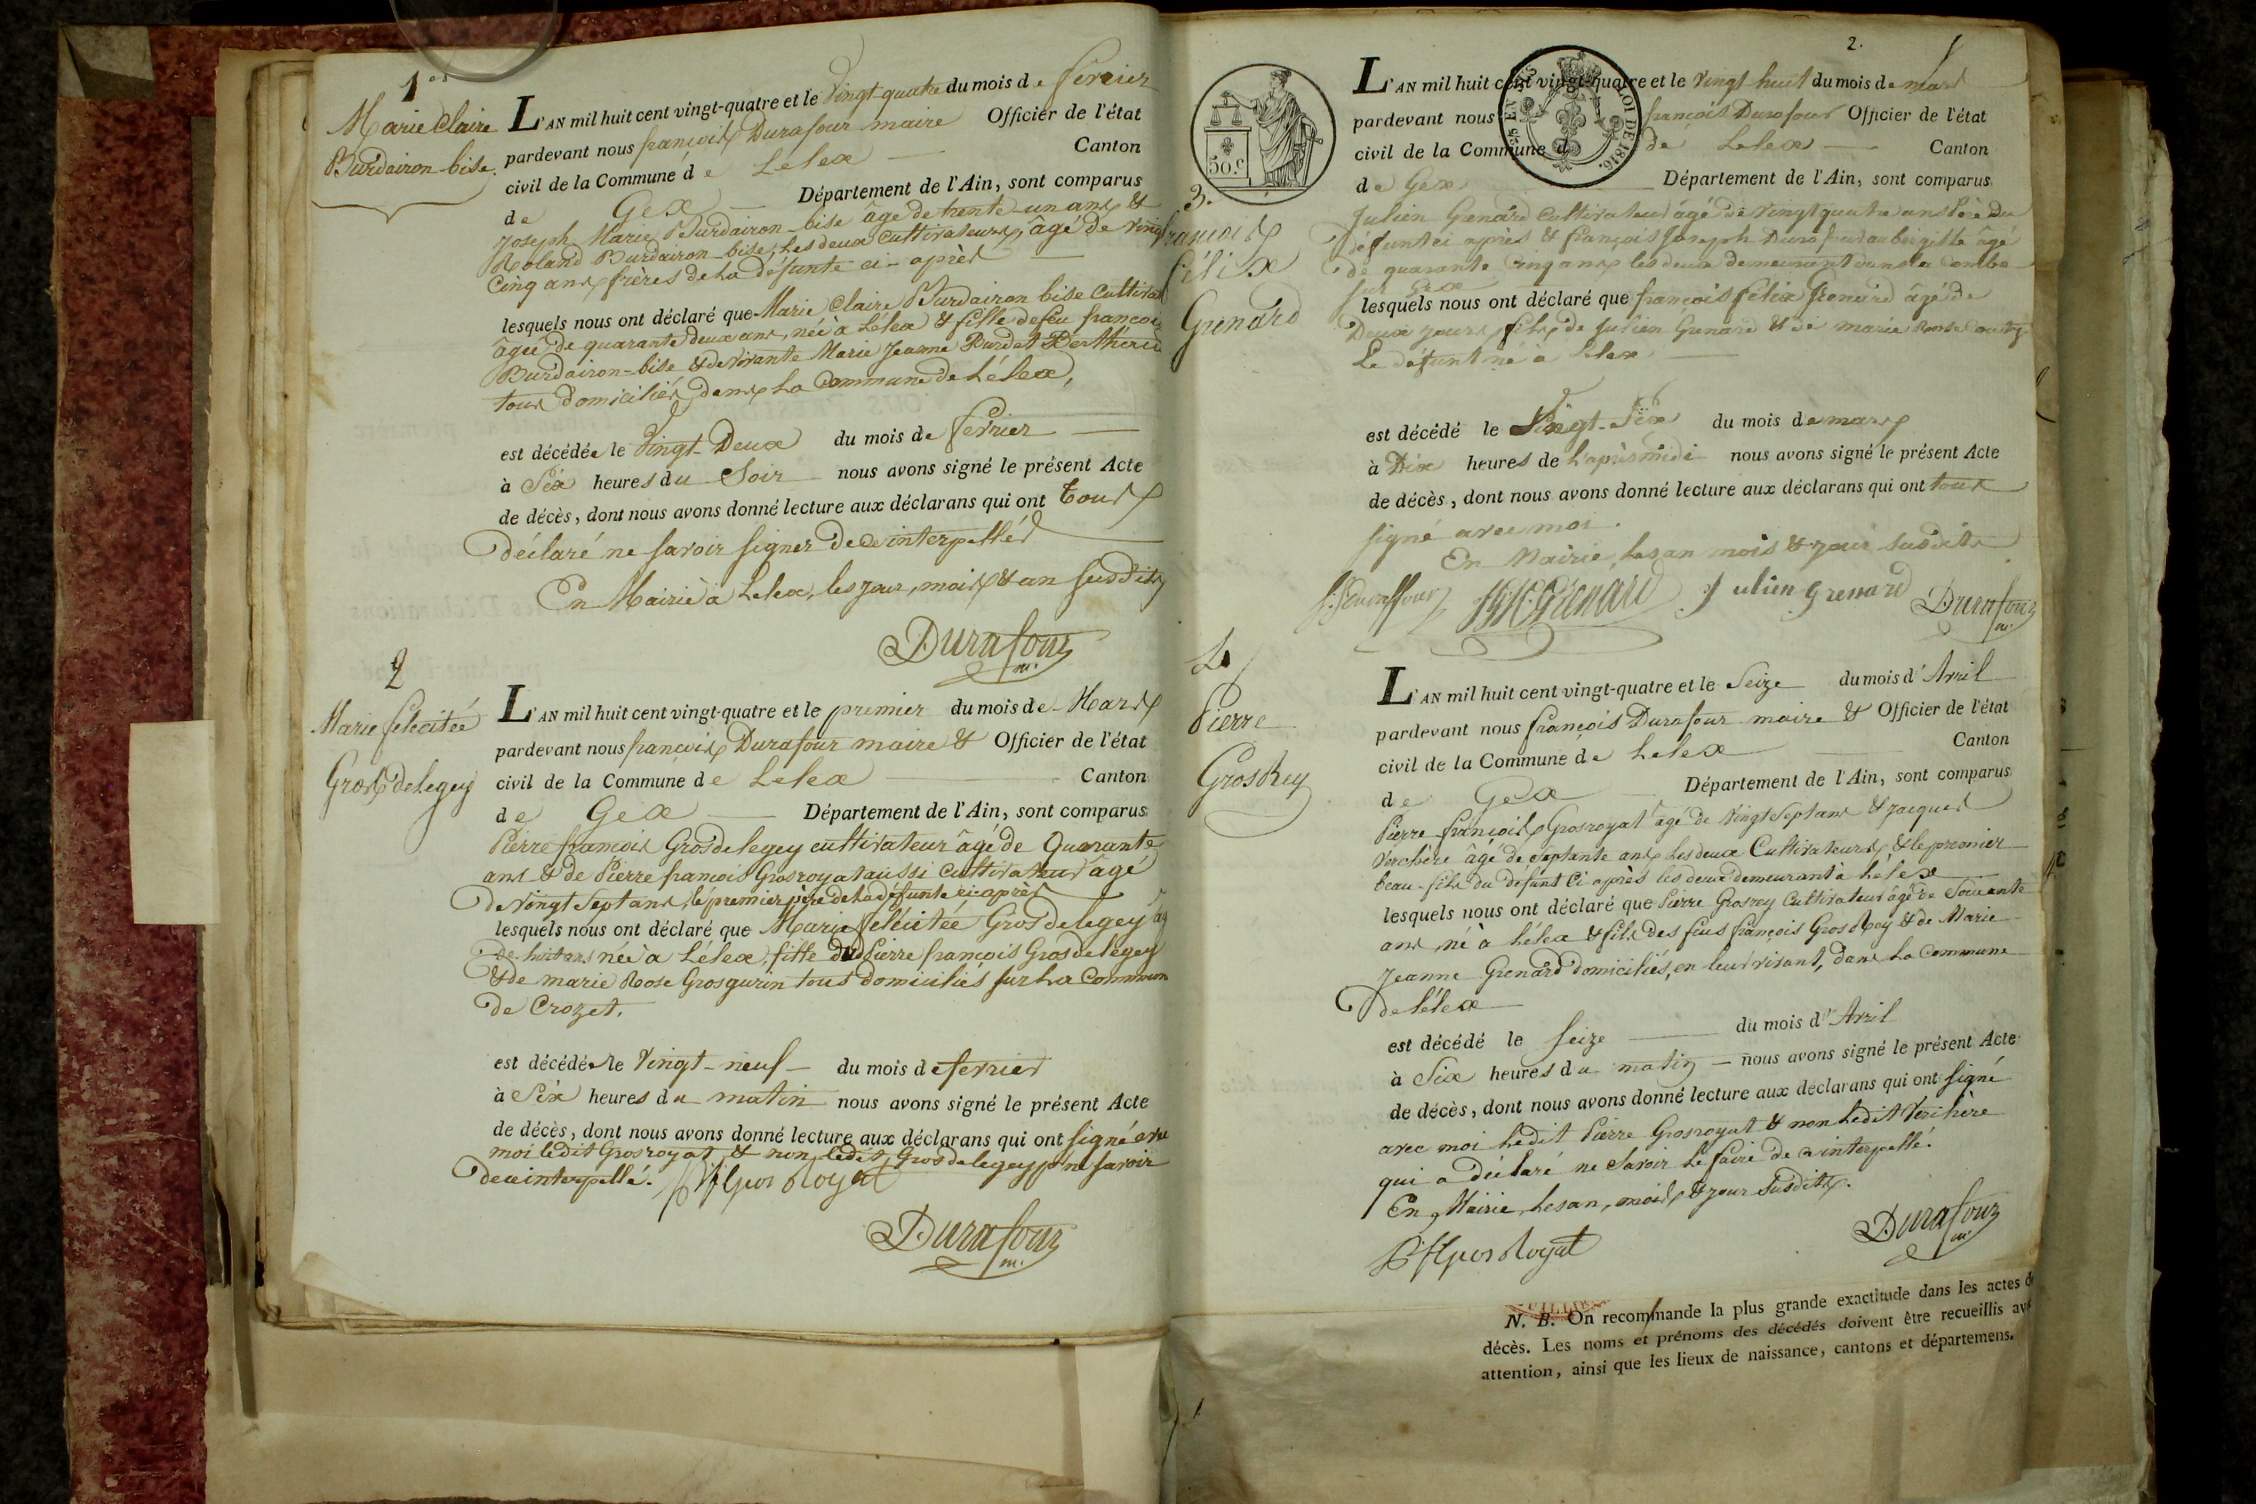 1er
Marie Claire
Burdairon-bise.
L'AN mil huit cent vingt-quatre et le Vingt quatre du mois de février
pardevant nous françois Durafour maire Officier de l'état
civil de la Commune de Lelex Canton
de Gex Département de l'Ain, sont comparus
Joseph Marie Burdairon-bise âgé de trente-un ans &
Roland Burdairon-bise, les deux cultivateurs, âgé de vingt
Cinq ans frères de la défunte ci-après
lesquels nous ont déclaré que Marie Claire Burdairon bise
âgée de quarante deux ans, née à Lélex & fille de feu
Burdairon-bise & de vivante Marie Jeanne Burdet
tous domiciliés dans la Commune de Lélex,
est décédée le Vingt-Deux du mois de février
à Six heures du Soir nous avons signé le présent Acte
de décès, dont nous avons donné lecture aux déclarans qui ont tous
déclaré ne savoir signer de ce interpellés
En Mairie à Lelex, les jour, mois & an susdits
Durafour m.
2
Marie félicitée
Gros delegey
L'AN mil huit cent vingt-quatre et le premier du mois de Mars
pardevant nous françois Durafour maire & Officier de l'état
civil de la Commune de Lelex Canton
de Gex Département de l'Ain, sont comparus
Pierre françois Gros delegey cultivateur âgé de Quarante
ans & de Pierre françois Grosroyat aussi Cultivateur âgé
de vingt Sept ans, le premier père de la défunte ci après
lesquels nous ont déclaré que Marie félicitée Gros delegey
de huit ans née à Lélex, fille Pierre françois Gros delegey
& de marie Rose Grosgurin tous domiciliés sur la Commun
de Crozet.
est décédée le Vingt-neuf du mois de fevrier
à Six heures du matin nous avons signé le présent Acte
de décès, dont nous avons donné lecture aux déclarans qui ont signé
moi ledit Grosroyat & non ledit Gros delegey savoir
de ce interpellé. Gros Royat
Durafour m.
2.
50.c
ROI DE 1816.
3.
françois
félix
Grenard
L'AN mil huit cent vingt-quatre et le Vingt huit du mois de mars
pardevant nous françois Durafour Officier de l'état
civil de la Commune d de Lelex Canton
de Gex Département de l'Ain, sont comparus
Julien Grenard Cultivateur âgé de vingt quatre ans Père du
défunt ci après & françois Joseph Dura âgé
de quarante cinq ans les deux demeurant dans la Combe
sur Gex
lesquels nous ont déclaré que françois félix Grenard âgé de
Deux jours, fils de Julien Grenard & de marie
Le défunt né à Lelex
est décédé le Vingt-Six du mois de mars
à Dix heures de l'après midi nous avons signé le présent Acte
de décès, dont nous avons donné lecture aux déclarans qui ont tous
signé avec moi.
En Mairie, les an mois & jour susdits
Grenard Julien Grenard Durafour m.
4
Pierre
Gros Rey
L'AN mil huit cent vingt-quatre et le Seize du mois d'Avril
pardevant nous françois Durafour maire & Officier de l'état
civil de la Commune de Lelex Canton
de Gex Département de l'Ain, sont comparus
Pierre françois Grosroyat âgé de Vingt Sept ans & jacques
Verchère âgé de Septante ans les deux Cultivateurs, & le premier
beau-fils du défunt Ci après les deux demeurant à Lélex
lesquels nous ont déclaré que Pierre Grosrey Cultivateur âgé de Soixante
ans, né à Lélex & fils des feus françois Gros Rey & de Marie
Jeanne Grenard domiciliés, en leur vivant, dans la Commune
de Lélex
est décédé le Seize du mois d'Avril
à Six heures du matin nous avons signé le présent Acte
de décès, dont nous avons donné lecture aux déclarans qui ont signé
avec moi ledit Pierre Grosroyat & non ledit Verchère
qui a déclaré ne Savoir le faire de ce interpellé.
En Mairie, les an, mois & jour Susdits.
Gros Royat Durafour m.
N. B. On recommande la plus grande exactitude dans les actes de
décès. Les noms et prénoms des décédés doivent être recueillis avec
attention, ainsi que les lieux de naissance, cantons et départemens.